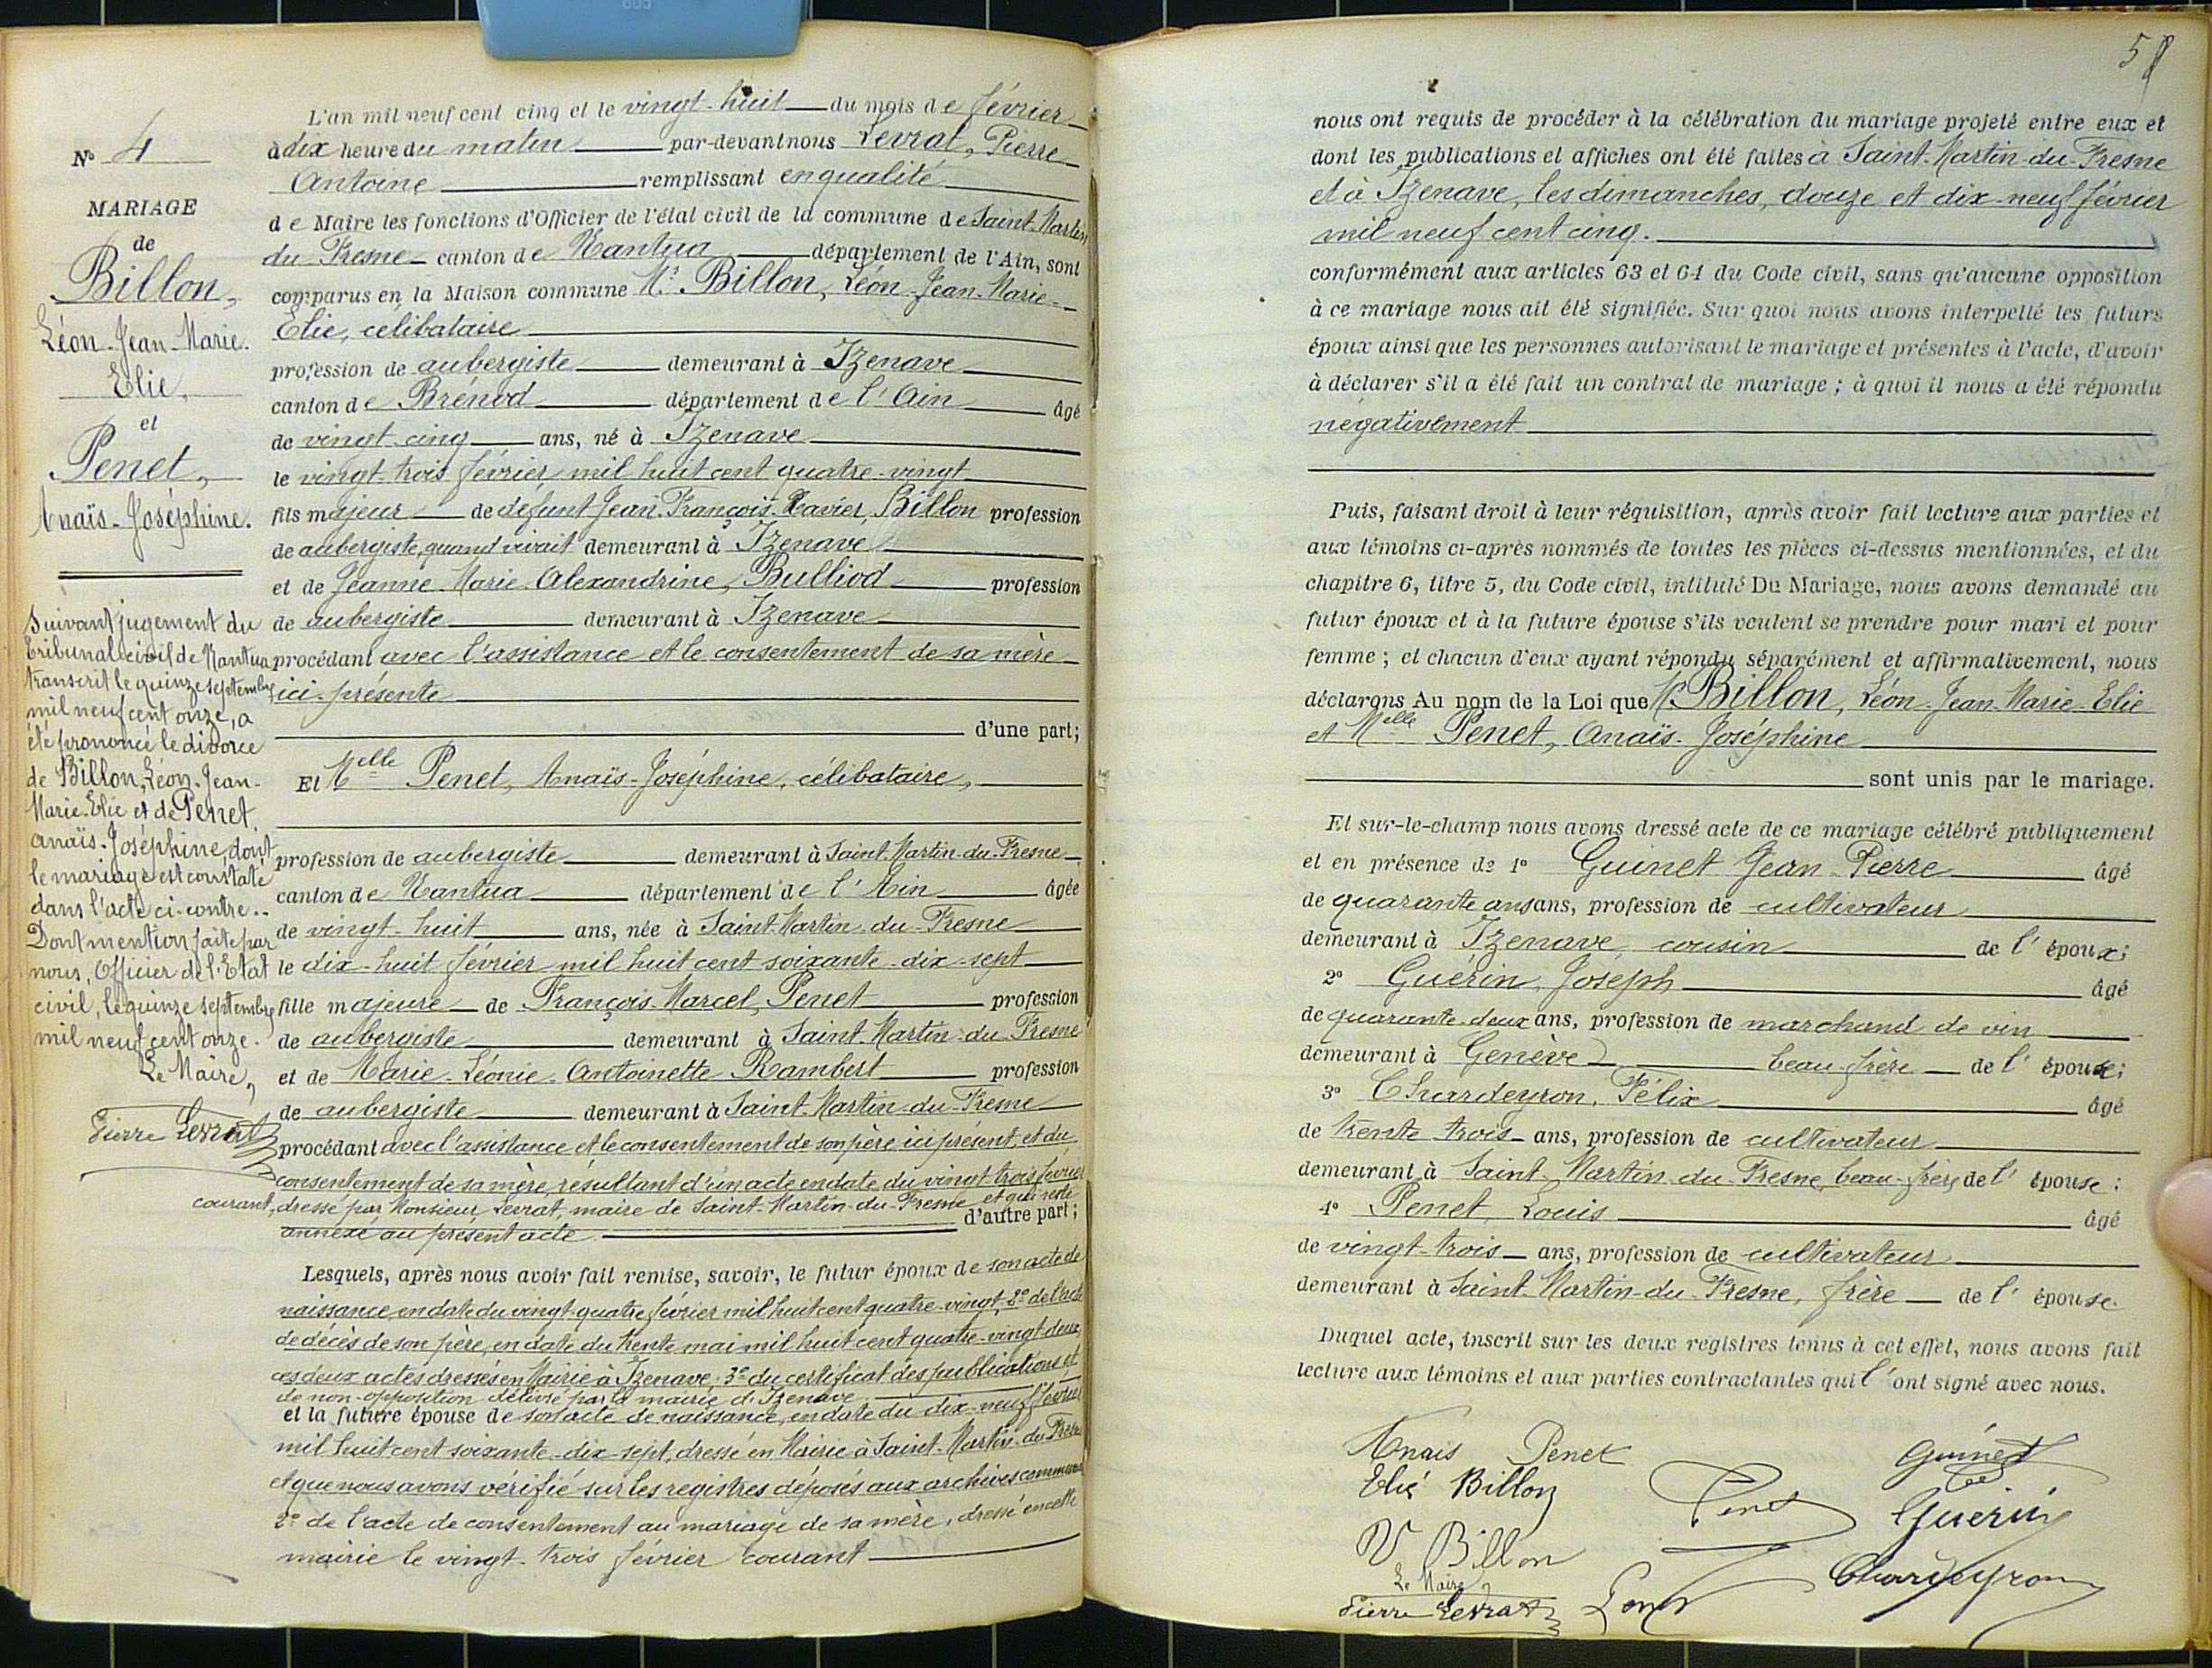 N° 4
MARIAGE
de
Billon,
Léon-Jean-Marie.
Elie,
et
Penet,
Anaïs-Joséphine.
Suivant jugement du
Tribunal civil de Nantua
transcrit le quinze septembre
mil neuf cent onze, a
été prononcé le divorce
de Billon, Léon-Jean-
Marie-Elie et de Penet
anaïs-Joséphine, dont
le mariage est constaté
dans l'acte ci-contre..
Dont mention faite par
nous, Officier de l'Etat
civil, le quinze septembre
mil neuf cent onze.
Le Maire,
Pierre Levrat
L'an mil neuf cent cinq et le vingt-huit du mois de février
à dix heure du matin par-devant nous Levrat, Pierre
Antoine remplissant en qualité
de Maire les fonctions d'Officier de l'état civil de la commune de Saint-Martin
du-Fresne canton de Nantua département de l'Ain, sont
comparus en la Maison commune Mr Billon, Léon-Jean-Marie-
Elie, célibataire
profession de aubergiste demeurant à Izenave
canton de Brénod département de l'Ain âgé
de vingt-cinq ans, né à Izenave
le vingt-trois février mil huit cent quatre-vingt
fils majeur de défunt Jean-François-Xavier, Billon profession
de aubergiste, quand vivait demeurant à Izenave
et de Jeanne-Marie-Alexandrine, Bulliod profession
de aubergiste demeurant à Izenave
procédant avec l'assistance et le consentement de sa mère
ici-présente
d'une part;
Et Melle Penet, Anaïs-Joséphine, célibataire,
profession de aubergiste demeurant à Saint-Martin-du-Fresne
canton de Nantua département de l'Ain âgée
de vingt-huit ans, née à Saint-Martin-du-Fresne
le dix-huit février mil huit cent soixante-dix-sept
fille majeure de François-Marcel, Penet profession
de aubergiste demeurant à Saint-Martin-du-Fresne
et de Marie-Léonie-Antoinette Rambert profession
de aubergiste demeurant à Saint-Martin-du-Fresne
procédant avec l'assistance et le consentement de son père ici présent, et du
consentement de sa mère, résultant d'un acte en date du vingt-trois février
courant, dressé par Monsieur Levrat, maire de Saint-Martin-du-Fresne et qui reste
annexé au présent acte d'autre part;
Lesquels, après nous avoir fait remise, savoir, le futur époux de son acte de
naissance, en date du vingt-quatre février mil huit cent quatre-vingt, 2° de l'acte
de décès de son père, en date du trente mai mil huit cent quatre-vingt-deux,
ces deux actes dressés en Mairie à Izenave; 3° du certificat des publications et
de non-opposition délivré par la mairie d'Izenave
et la future épouse de son acte de naissance, en date du dix-neuf février
mil huit cent soixante-dix-sept, dressé en Mairie à Saint-Martin-du-Fresne
et que nous avons vérifié sur les registres déposés aux archives communales
2° de l'acte de consentement au mariage de sa mère, dressé en cette
mairie le vingt-trois février courant
nous ont requis de procéder à la célébration du mariage projeté entre eux et
dont les publications et affiches ont été faites à Saint-Martin-du-Fresne
et à Izenave, les dimanches, douze et dix-neuf février
mil neuf cent cinq.
conformément aux articles 63 et 64 du Code civil, sans qu'aucune opposition
à ce mariage nous ait été signifiée. Sur quoi nous avons interpellé les futurs
époux ainsi que les personnes autorisant le mariage et présentes à l'acte, d'avoir
à déclarer s'il a été fait un contrat de mariage; à quoi il nous a été répondu
négativement
Puis, faisant droit à leur réquisition, après avoir fait lecture aux parties et
aux témoins ci-après nommés de toutes les pièces ci-dessus mentionnées, et du
chapitre 6, titre 5, du Code civil, intitulé Du Mariage, nous avons demandé au
futur époux et à la future épouse s'ils veulent se prendre pour mari et pour
femme; et chacun d'eux ayant répondu séparément et affirmativement, nous
déclarons Au nom de la Loi que Mr Billon, Léon-Jean-Marie-Elie
et Melle Penet, Anaïs-Joséphine
sont unis par le mariage.
Et sur-le-champ nous avons dressé acte de ce mariage célébré publiquement
et en présence de 1° Guinet Jean-Pierre âgé
de quarante ans ans, profession de cultivateur
demeurant à Izenave, cousin de l'époux;
2° Guérin, Joseph âgé
de quarante-deux ans, profession de marchand de vin
demeurant à Genève beau-frère de l'épouse;
3° Chardeyron, Félix âgé
de trente trois ans, profession de cultivateur
demeurant à Saint-Martin-du-Fresne, beau-frère de l'épouse;
4° Penet, Louis âgé
de vingt-trois ans, profession de cultivateur
demeurant à Saint-Martin-du-Fresne, frère de l'épouse.
Duquel acte, inscrit sur les deux registres tenus à cet effet, nous avons fait
lecture aux témoins et aux parties contractantes qui l'ont signé avec nous.
Anais Penet
Guinet
Elie Billon
Penet
Guérin
V Billon
Chardeyron
Le Maire,
Pierre Levrat